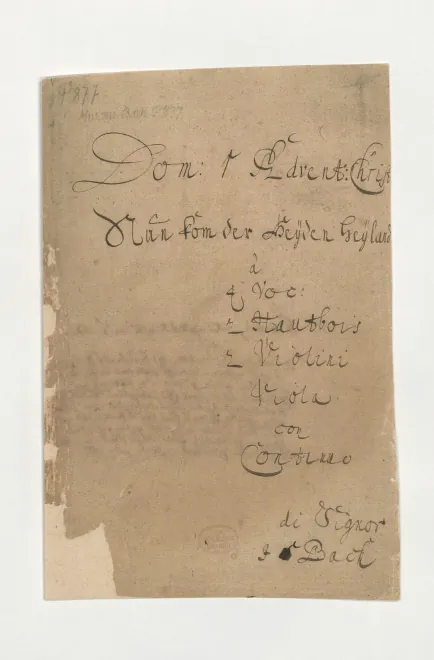 P 877
Mus. ms. Bach P 877
Dom: 1 Advent: Christ
Nūn kōm der Heÿden Heÿland
à
4 Voc:
2 Hautbois
2 Violini
Viola
con
Continuo
di Signor
J S Bach